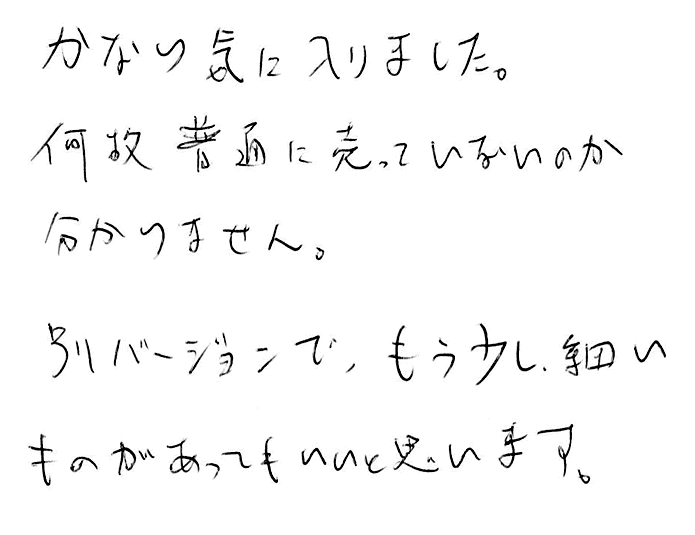 かなり気に入りました。
何故普通に売っていないのか
分かりません。
別バージョンで、もう少し、細い
ものがあってもいいと思います。